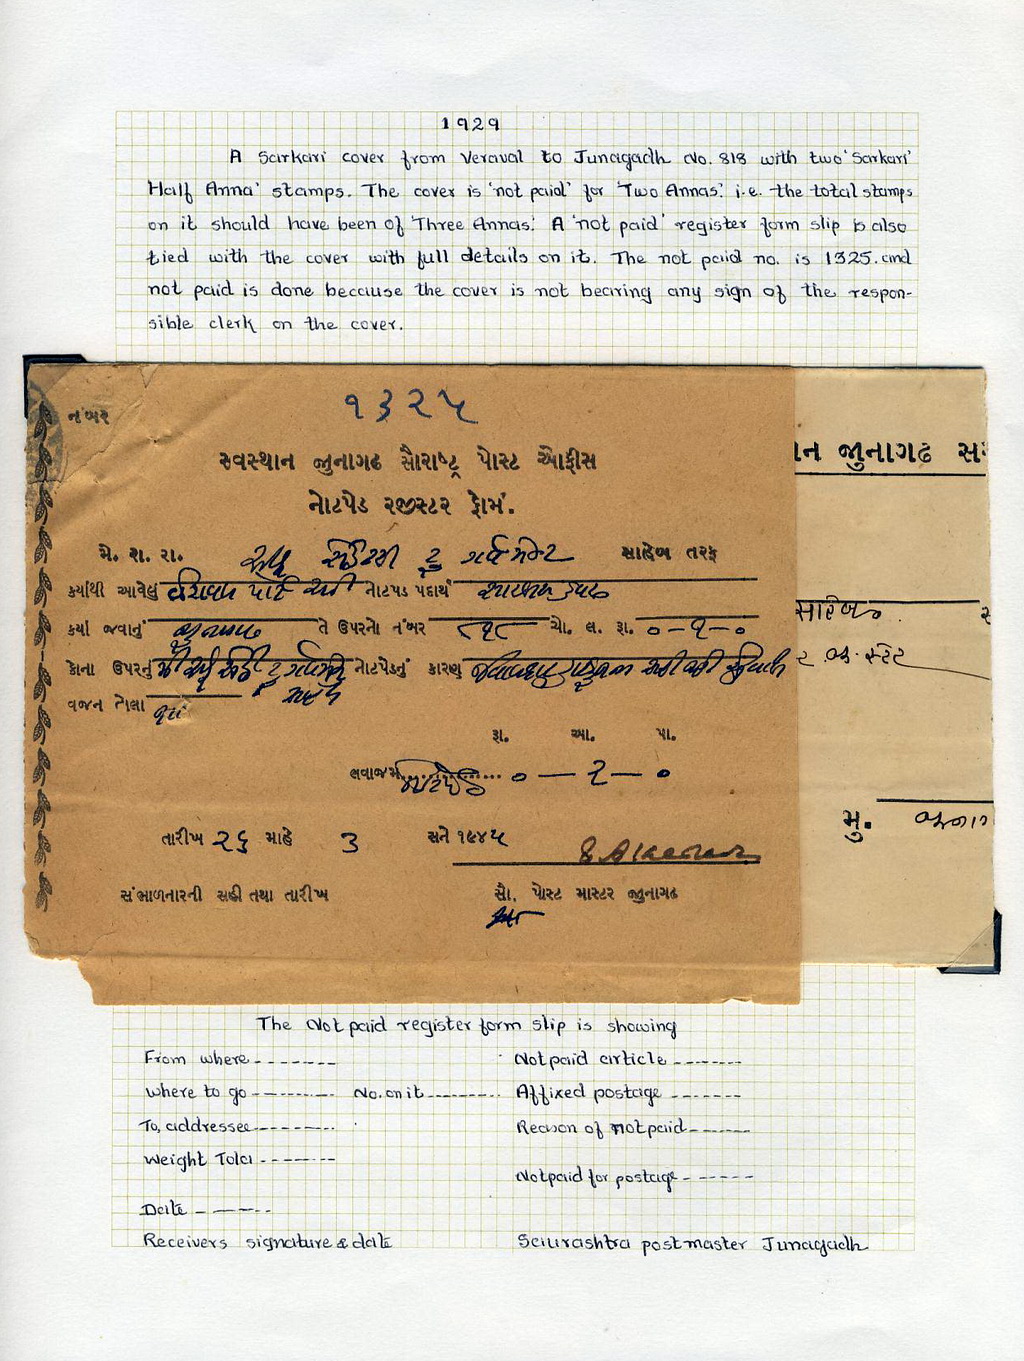 1929
A Sarkari cover from Veraval to Junagadh No. 818 with two 'Sarkari'
Half Anna' stamps. The cover is 'not paid' for 'Two Annas'. i.e. the total stamps
on it should have been of 'Three Annas'. A 'not paid' register form slip is also
tied with the cover with full details on it. The not paid no. is 1325. and
not paid is done because the cover is not bearing any sign of the respon-
sible clerk on the cover.
નંબર ૧૩૨૫
સ્વસ્થાન જુનાગઢ સૌરાષ્ટ્ર પોસ્ટ ઓફીસ
ન જુનાગઢ સ
નોટપેડ રજીસ્ટર ફોર્મ.
મે. શ. રા. સાહેબ તરફ
ક્યાંથી આવેલું વેરાવળ નોટપેડ પદાર્થ
સાહેબ
ક્યાં જવાનું જુનાગઢ તે ઉપરનો નંબર ૮૧૮ ચો. લ. રૂા. ૦-૧-૦
કોના ઉપરનું નોટપેડનું કારણ
ર જી. સ્ટેટ
વજન તોલા
રૂા. આ. પા.
લવાજમ નોટપેડ ૦-૨-૦
મુ.
તારીખ ૨૬ માહે 3 સને ૧૯૪૫
સંભાળનારની સહી તથા તારીખ સૌ. પોસ્ટ માસ્ટર જુનાગઢ
The Not paid register form slip is showing
From where -------- Notpaid article --------
Where to go -------- No. on it -------- Affixed postage --------
To, addressee -------- Reason of notpaid --------
Weight Tola --------
Notpaid for postage --------
Date --------
Receivers signature & date Saurashtra postmaster Junagadh